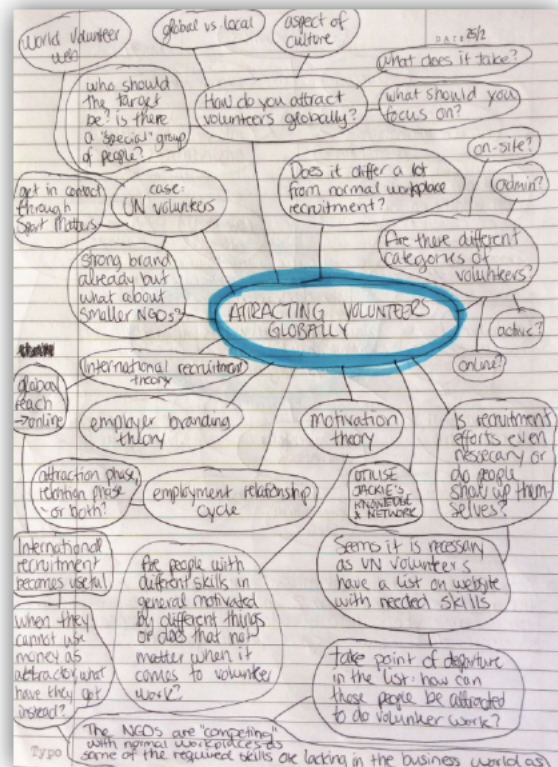 World Volunteer
Web
global vs. local
aspect of
culture
DATE 25/2
what does it take?
what should you
focus on?
How do you attract
volunteers globally?
who should
the target
be? is there
a "special" group
of people?
on-site?
admin?
Does it differ a lot
from normal workplace
recruitment?
get in contact
through
Sport Matters
case:
UN volunteers
Are there different
categories of
volunteers?
strong brand
already but
what about
smaller NGOs?
ATTRACTING VOLUNTEERS
GLOBALLY
active?
online?
International recruitment
theory
global
reach
→online
employer branding
theory
motivation
theory
Is recruitment
efforts even
nesecary or
do people
show up them-
selves?
attraction phase,
retention phase
or both?
employment relationship
cycle
UTILISE
JACKIE'S
KNOWLEDGE
& NETWORK
International
recruitment
becomes useful
Are people with
different skills in
general motivated
by different things
or does that not
matter when it
comes to volunteer
work?
Seems it is necessary
as UN Volunteers
have a list on website
with needed skills
when they
cannot use
money as
attractor, what
have they got
instead?
take point of departure
in the list: how can
those people be attracted
to do volunteer work?
The NGOs are "competing"
with normal workplaces as
some of the required skills are lacking in the business world as
Typo